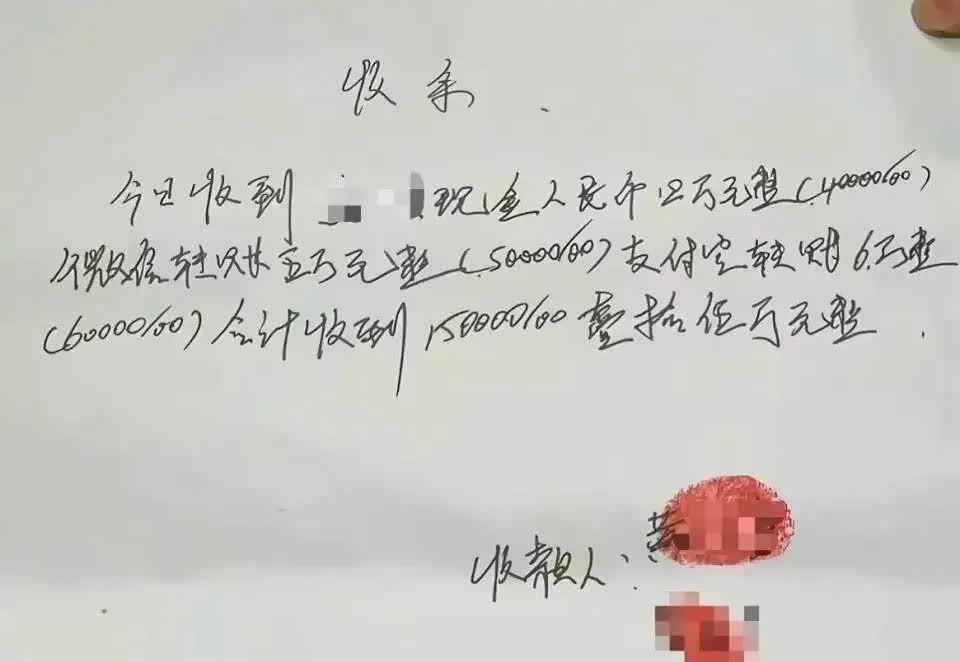 收条.
今日收到 现金人民币四万元整(40000/00)
微信转账五万元整(50000/00)支付宝转账6万整
(60000/00)合计收到150000/00壹拾伍万元整.
收款人:黄